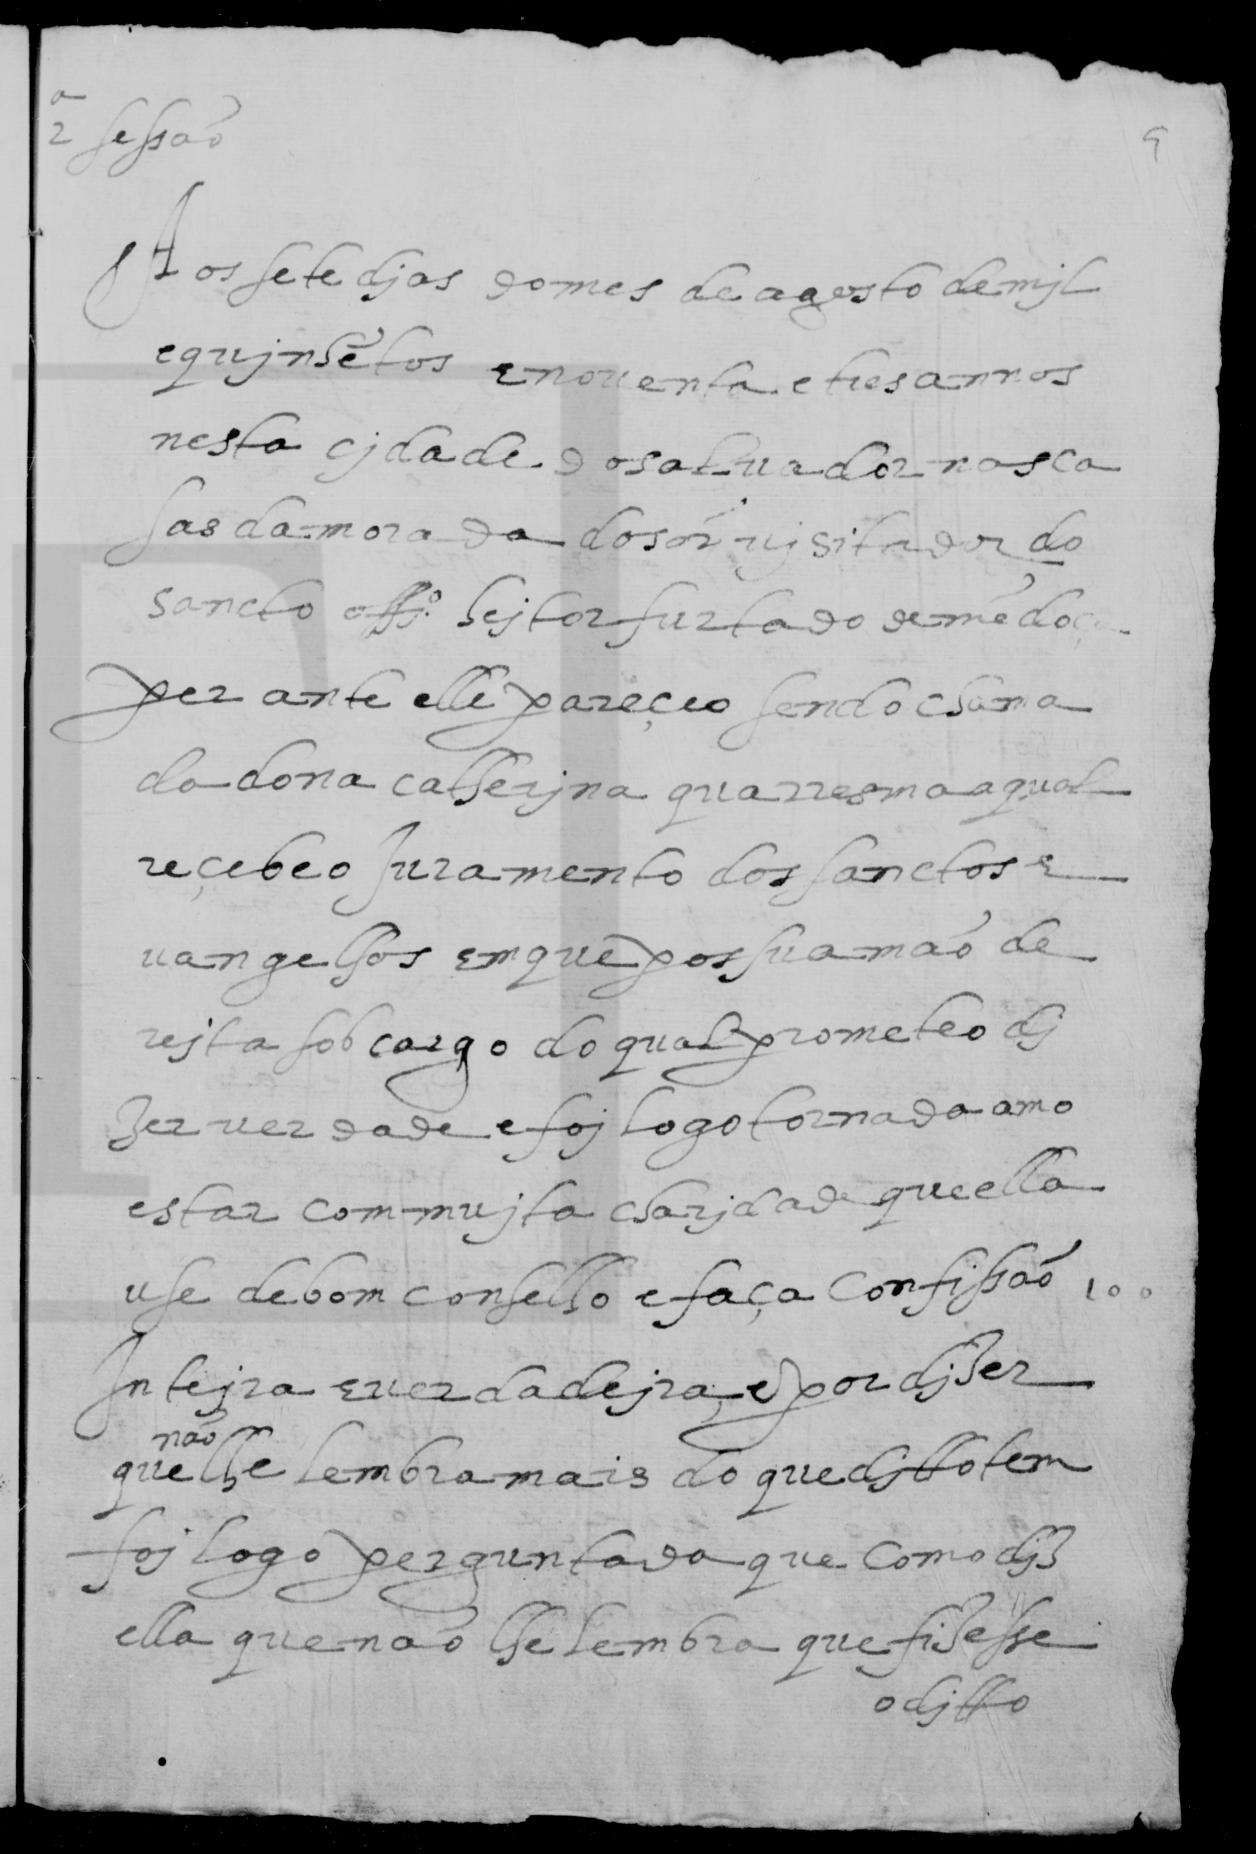 2ª sessaõ
9
Aos sete djas do mes de agosto de mjl
e qujnhẽtos e nouenta e tres annos
nesta cjdade do saluador nas ca
sas da morada do sõr vjsitador do
sancto offº. hejtor furtado de mẽdoça
perante elle pareçeo sendo chama
da dona catherjna quaresma a qual
reçebeo Juramento dos sanctos e
uangelhos em que pos sua maõ de
rejta sob cargo do qual prometeo dj
zer verdade e foj logo tornada amo
estar com mujta charjdade que ella
use de bom conselho e faça confissaõ
100
Intejra e verdadejra, e por djzer
naõ
que lhe lembra mais do que djtto tem
foj logo perguntada que como djz
ella que naõ lhe lembra que fizesse
o djtto